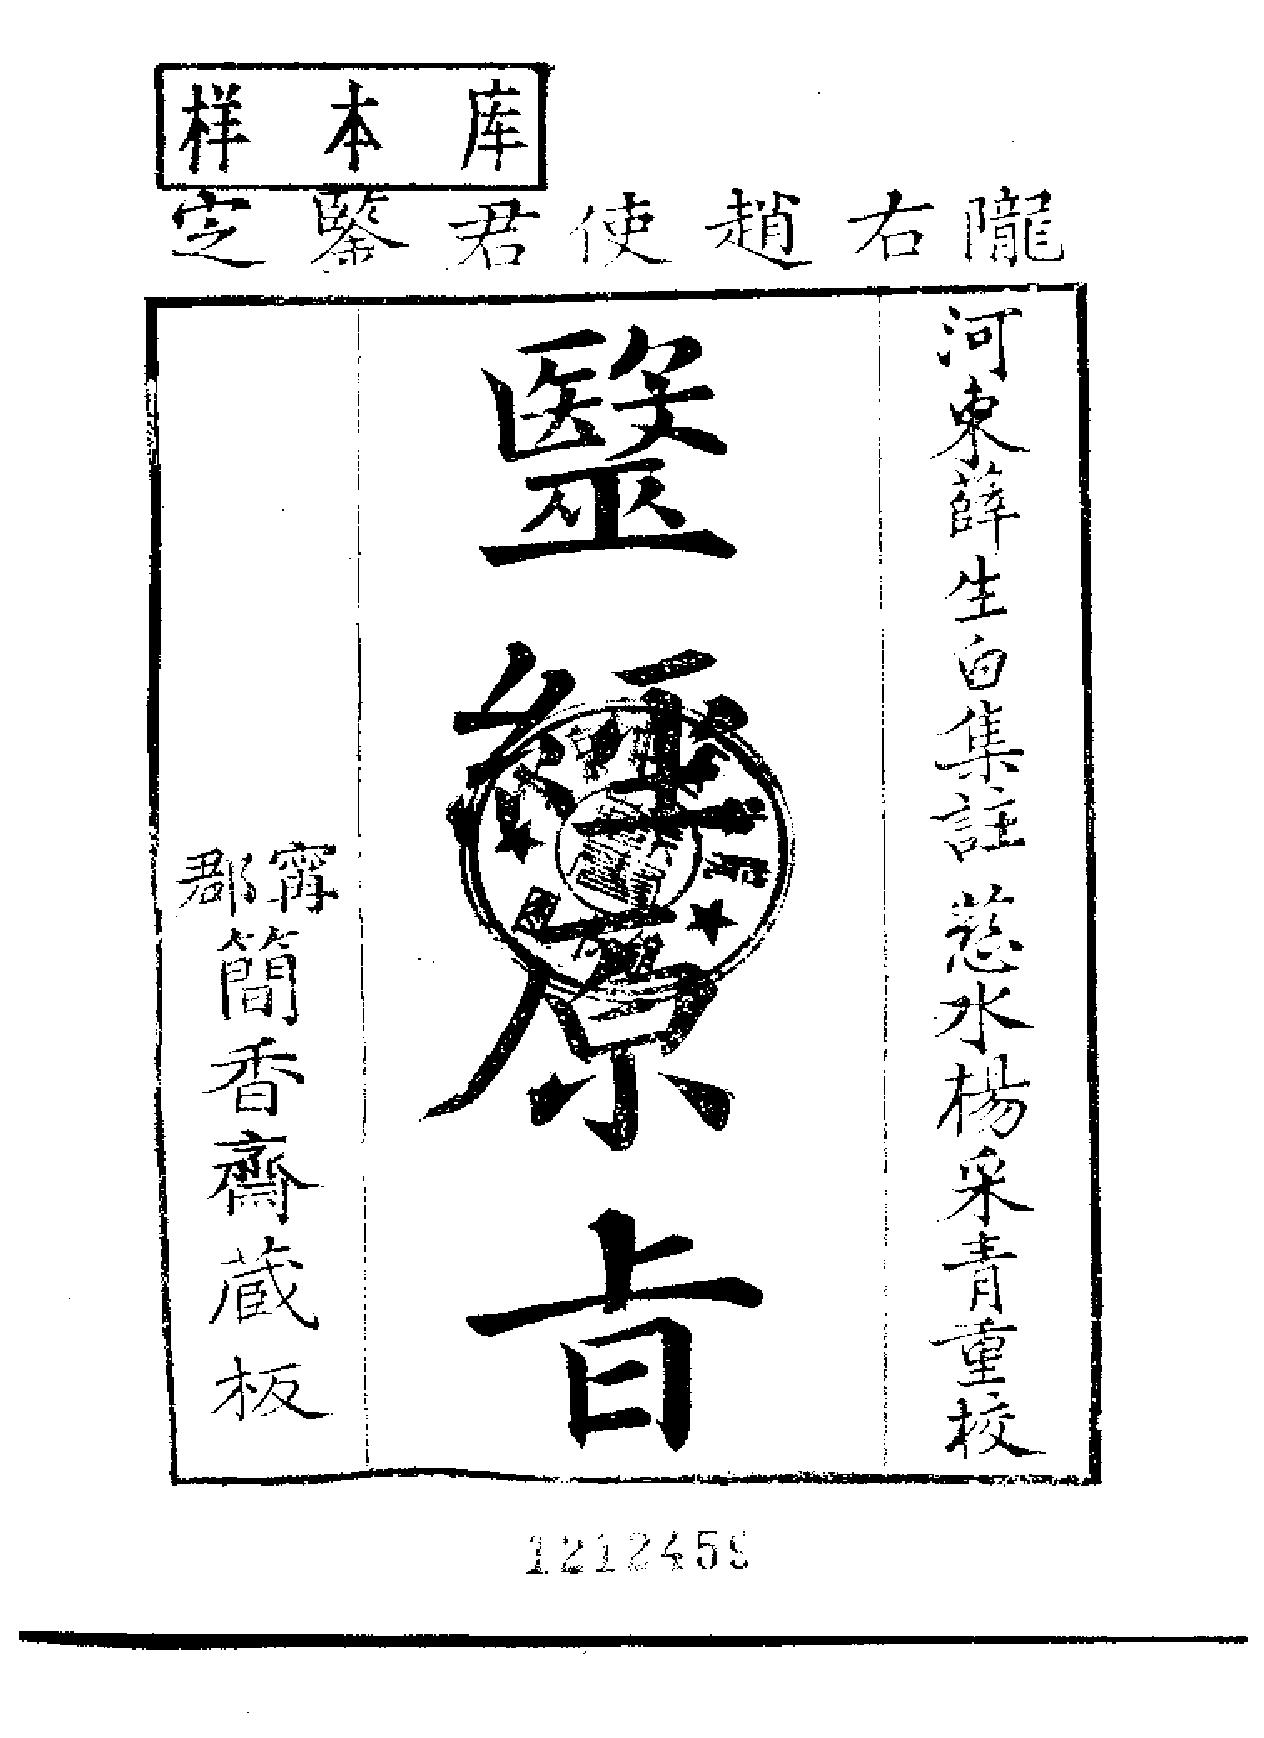 样本库
隴右趙使君鑒定
河東薛生白集註 慈水楊采青重校
醫經原旨
甯郡簡香齋蔵板